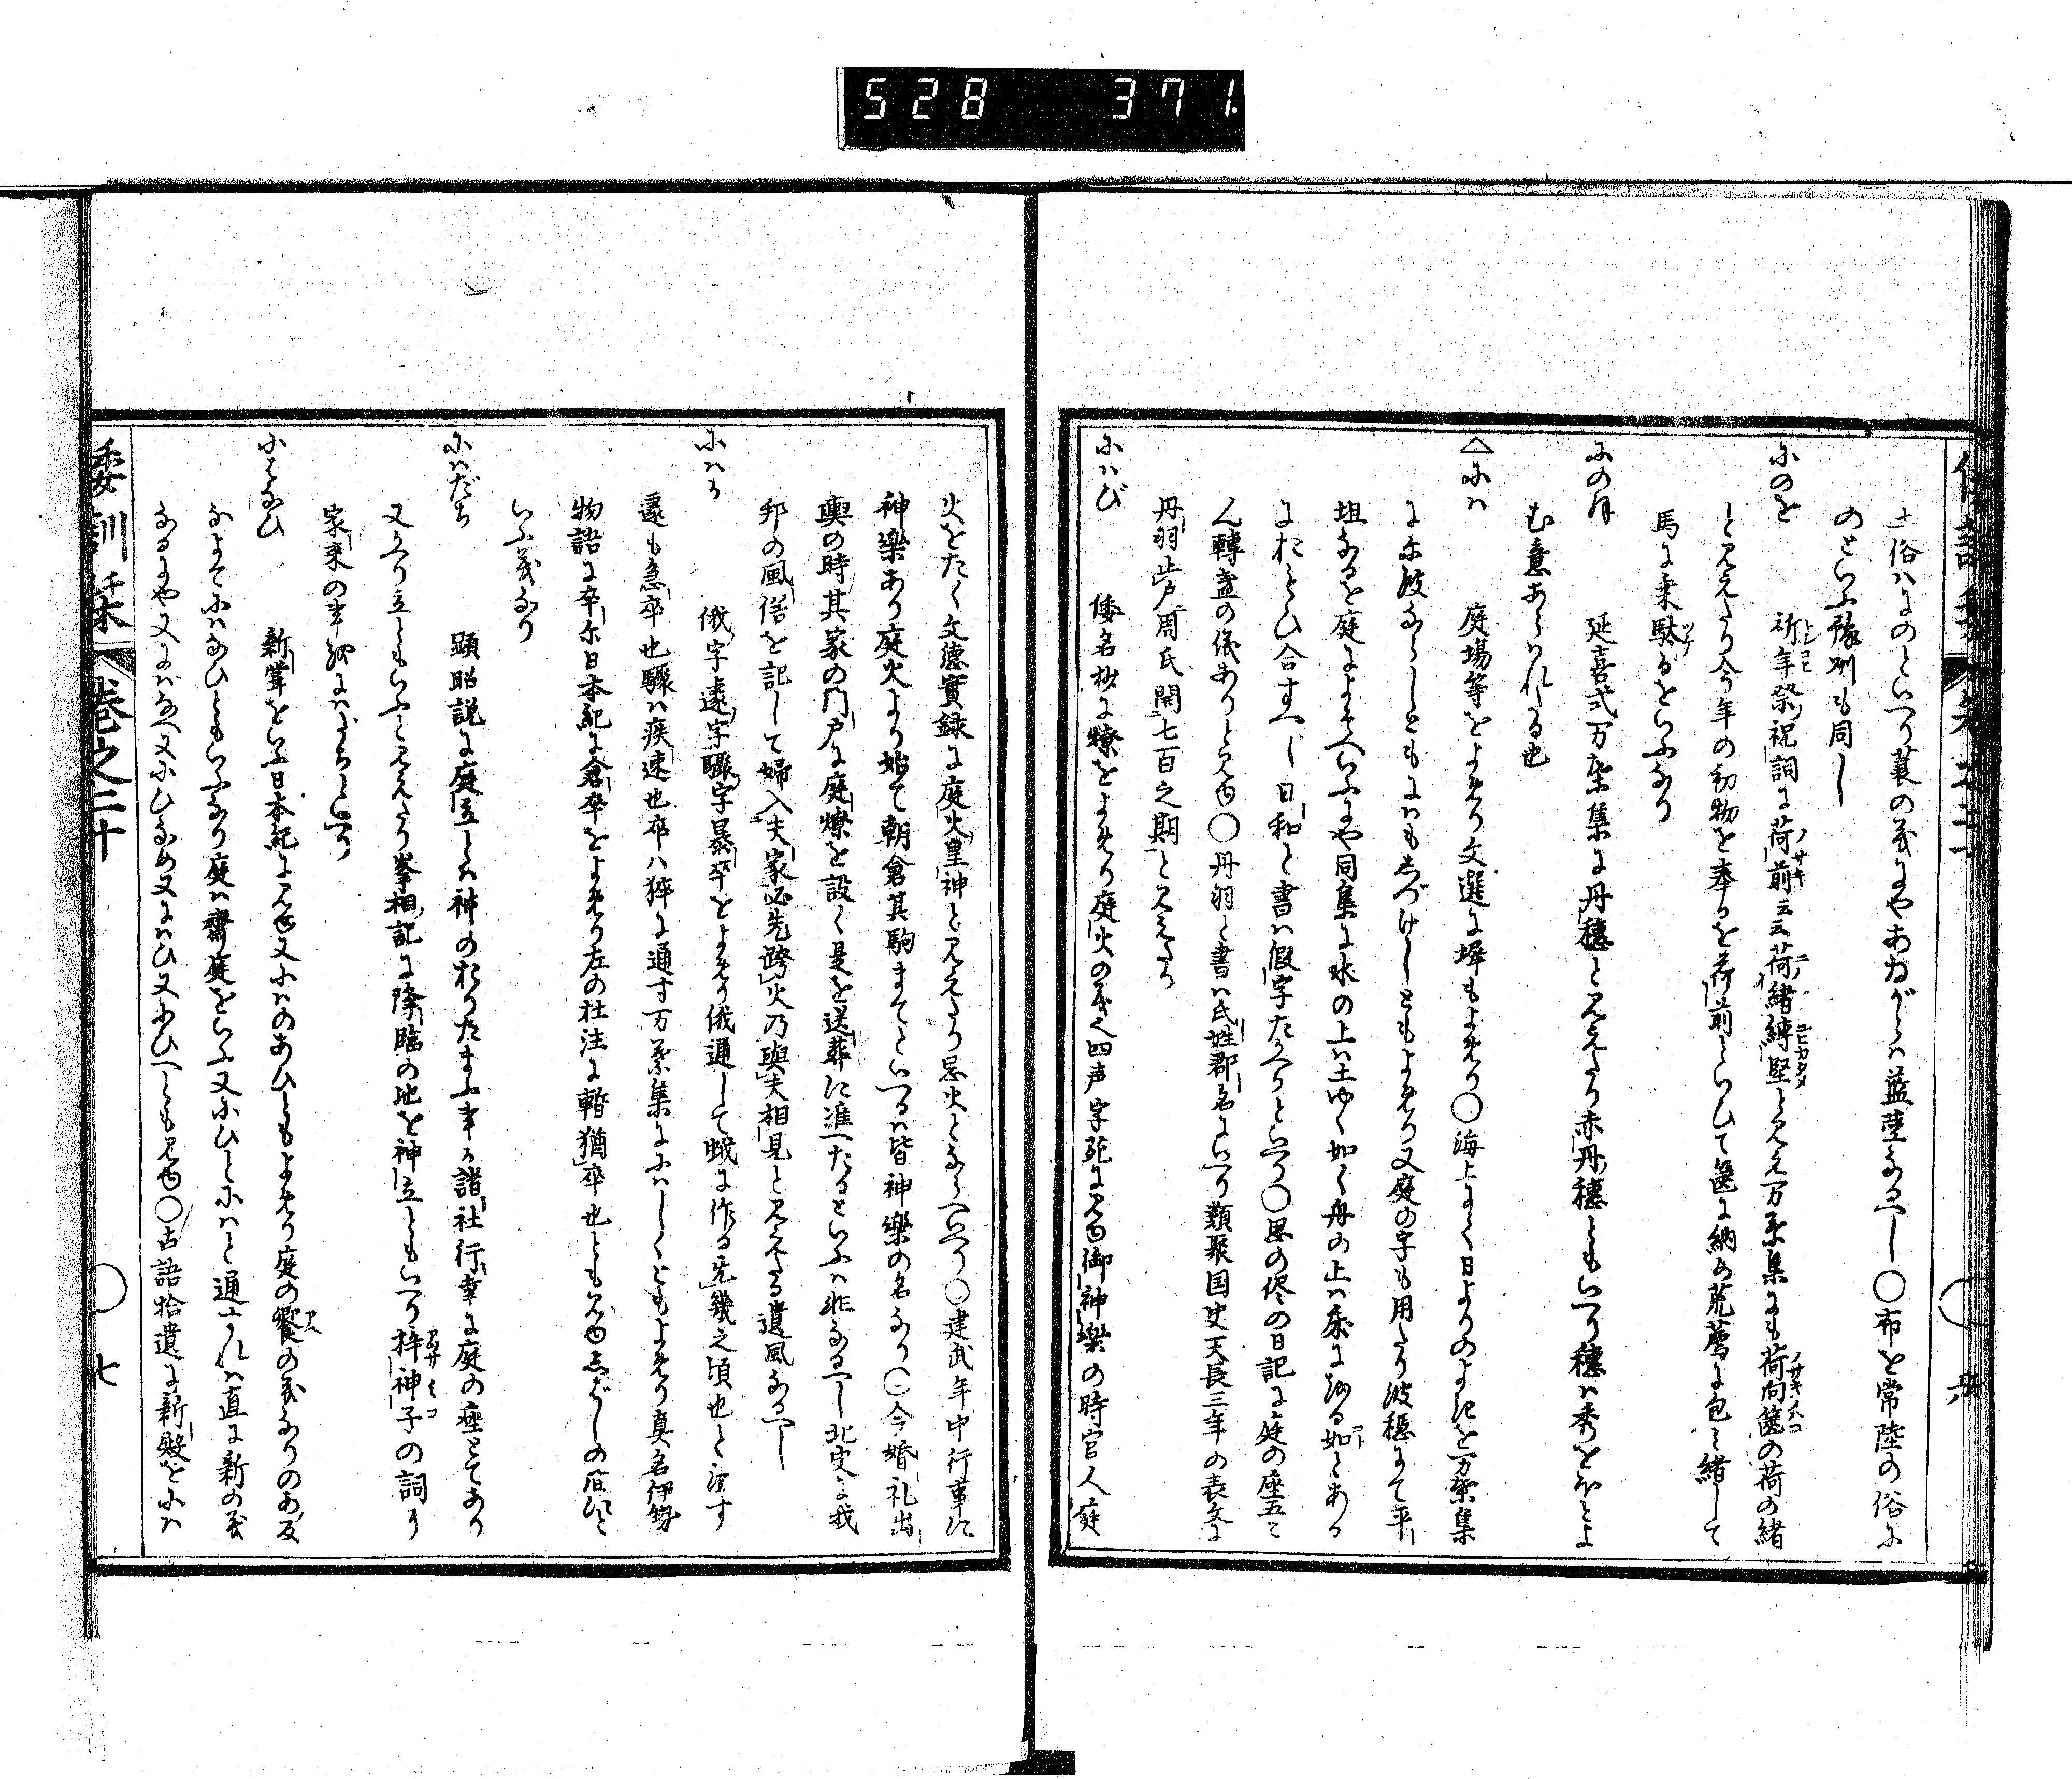 528 371
土俗ハにのといへり蓑の義にやあねがらハ藍莖なるへし〇布を常陸の俗に
のといふ豫州も同し
にのを 祈年祭祝詞に荷前云云荷緒縛堅と見え万葉集にも荷向篋の荷の緒
と見えたり今年の初物を奉るを荷前といひて篋に納め荒薦に包み緒して
馬に乗駄るをいふなり
にのほ 延喜式万葉集に丹穗と見えたり赤丹穗ともいへり穗は秀をほとよ
む意あらハれたる也
△には 庭場等をよめり文選に墀もよめり〇海上よく日よりのよきを万葉集
に尓波ならしともにハもしづけしともよめり又庭の字も用たり波穩にて平
坦なるを庭によそへいふにや同集に水の上ハ土ゆく如く舟の上ハ床にをる如とある
におもひ合すへし日和と書ハ假字たかへりといへり〇思の侭の日記に庭の座五こ
ん轉盃の儀ありと見ゆ〇丹羽と書ハ氏姓郡名にいへり類聚国史天長三年の表文に
丹羽止戸周氏開七百之期と見えたり
にハび 倭名抄に燎をよめり庭火の義也四声字苑に見ゆ御神樂の時官人庭
火をたく文德實録に庭火皇神と見えたり忌火とならへいへり〇建武年中行事に
神樂あり庭火より始て朝倉其駒まてといへるハ皆神樂の名なり〇今婚礼出
輿の時其家の門戸に庭燎を設く是を送葬に准へたるといふハ非なるへし北史に我
邦の風俗を記して婦入夫家必先跨火乃與夫相見と見えたる遺風なるへし
にハか 俄字遽字驟字暴卒をよめり俄通して蛾に作る先幾之頃也と注す
遽も急卒也驟ハ疾速也卒ハ猝に通す万葉集ににハしくともよめり真名伊勢
物語に卒尓日本紀に倉卒をよめり左の杜注に暫猶卒也とも見ゆしばしの間に
いふ義なり
にハだち 顕昭説に庭立とハ神のおりたまふ事か諸社行幸に庭の座とてあり
又かへり立ともいふと見えたり峯相記に降臨の地を神立ともいへり梓神子の詞に
家来の事をにハだちといへり
にはなひ 新嘗をいふ日本紀に見ゆ又にハのあひともよめり庭の饗の義なりのあ反
なよてにハなひともいふなり庭ハ齋庭をいふ又にひとにハと通ふされハ直に新の義
なるにや又にばなへ又にひなめ又にハひ又にひへとも見ゆ〇古語拾遺に新殿をにハ
倭訓栞 卷之二十 〇 七